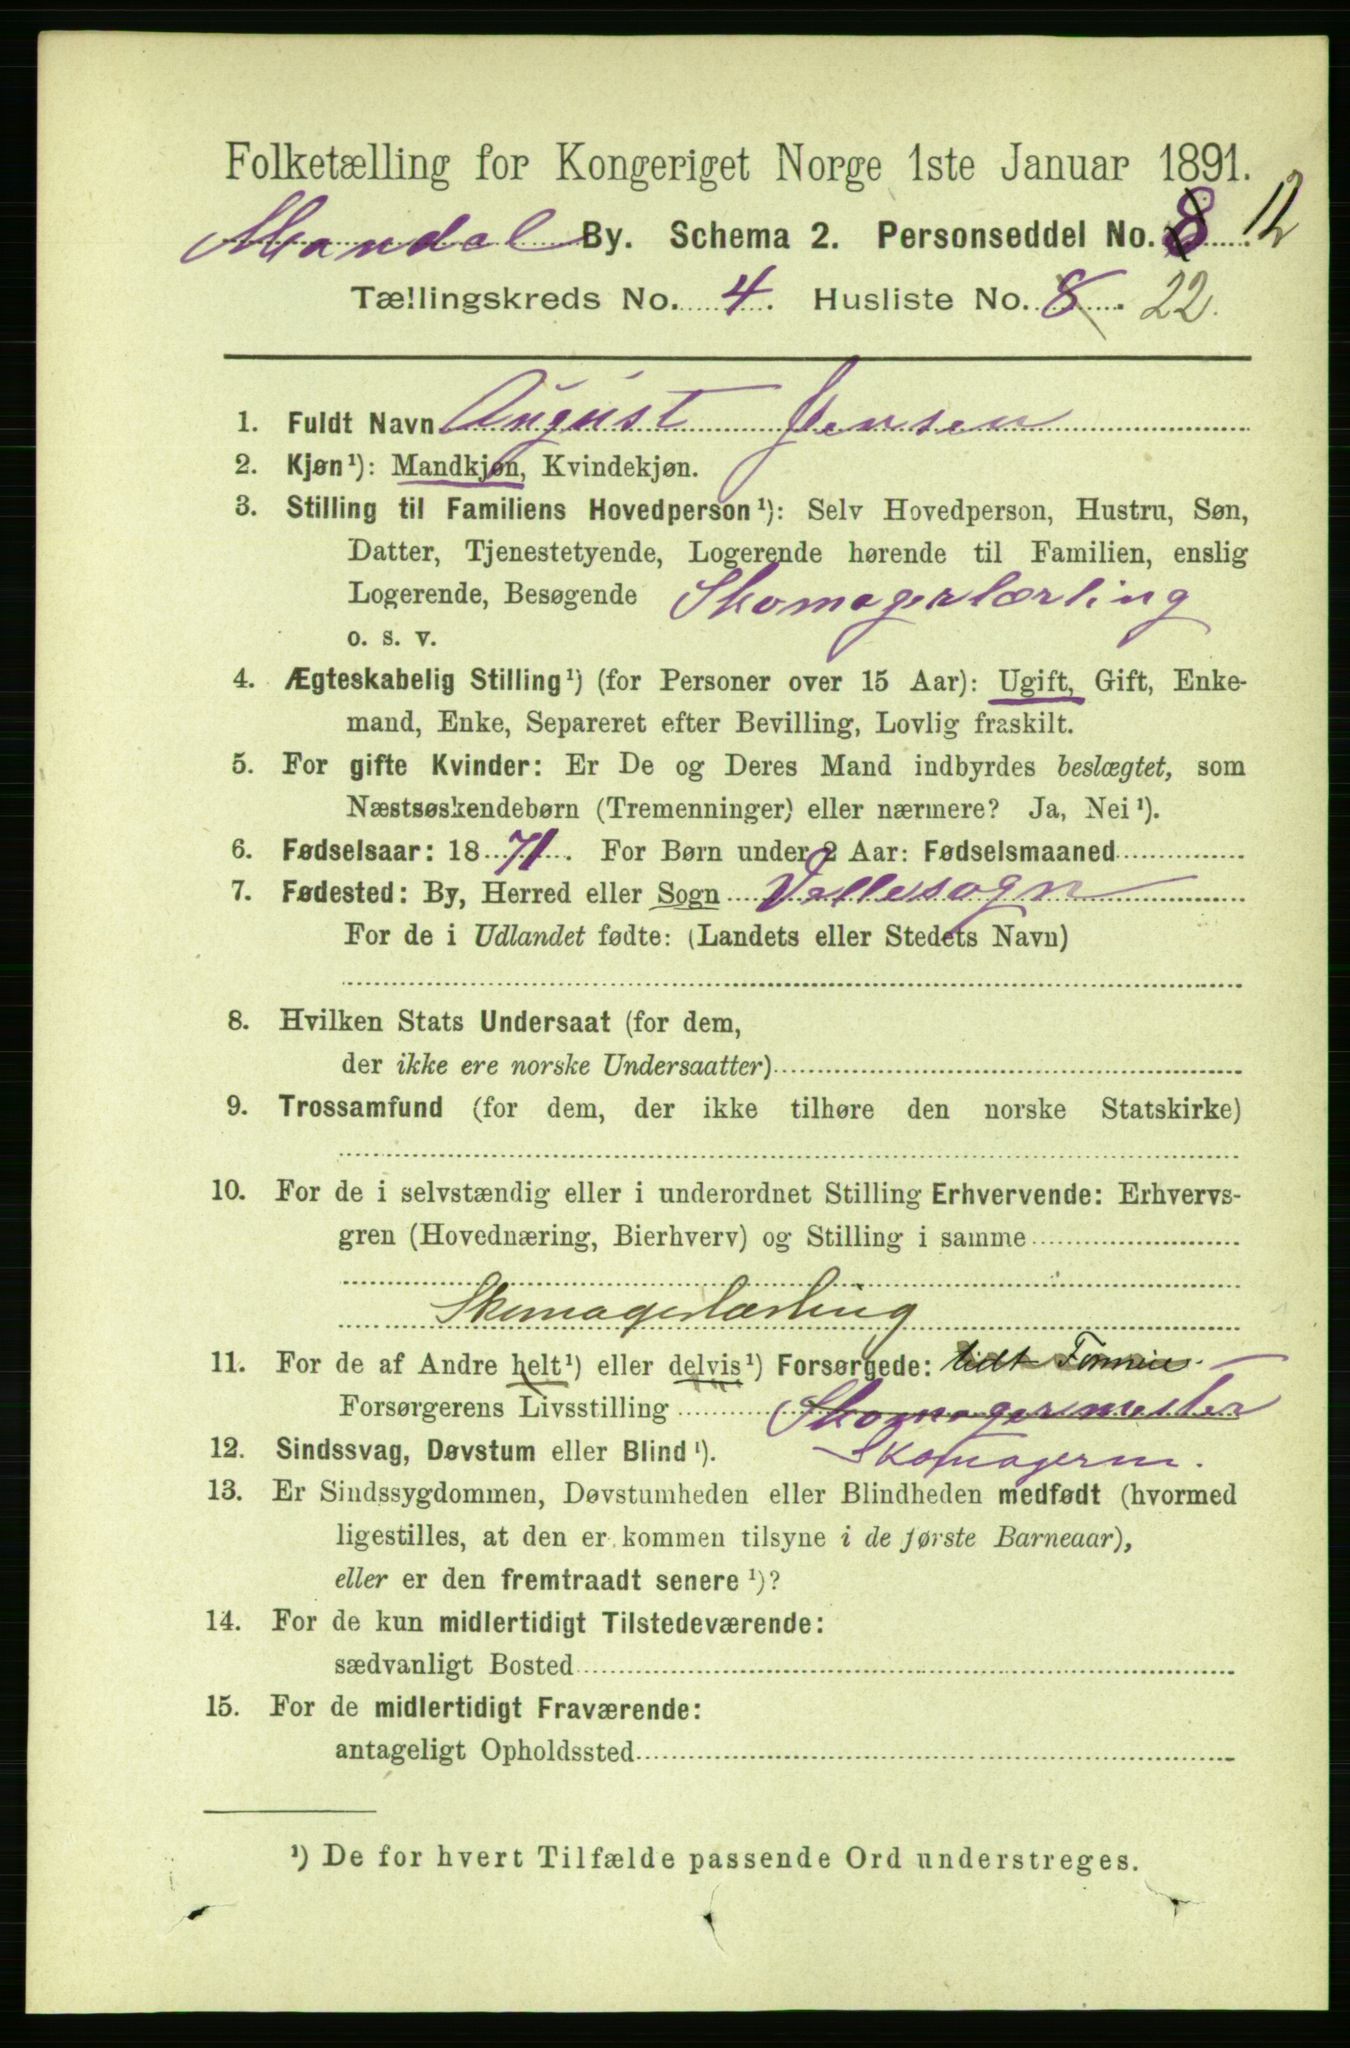 Folketælling for Kongeriget Norge 1ste Januar 1891.
Mandal By. Schema 2. Personseddel No. 8 12
Tællingskreds No. 4. Husliste No. 8. 22.
1. Fuldt Navn August Jensen
2. Kjøn¹): Mandkjøn, Kvindekjøn.
3. Stilling til Familiens Hovedperson¹): Selv Hovedperson, Hustru, Søn,
Datter, Tjenestetyende, Logerende hørende til Familien, enslig
Logerende, Besøgende Skomagerlærling
o. s. v.
4. Ægteskabelig Stilling¹) (for Personer over 15 Aar): Ugift, Gift, Enke-
mand, Enke, Separeret efter Bevilling, Lovlig fraskilt.
5. For gifte Kvinder: Er De og Deres Mand indbyrdes beslægtet, som
Næstsøskendebørn (Tremenninger) eller nærmere? Ja, Nei¹).
6. Fødselsaar: 1871. For Børn under 2 Aar: Fødselsmaaned
7. Fødested: By, Herred eller Sogn Vallesogn
For de i Udlandet fødte: (Landets eller Stedets Navn)
8. Hvilken Stats Undersaat (for dem,
der ikke ere norske Undersaatter)
9. Trossamfund (for dem, der ikke tilhøre den norske Statskirke)
10. For de i selvstændig eller i underordnet Stilling Erhvervende: Erhvervs-
gren (Hovednæring, Bierhverv) og Stilling i samme
Skomagerlærling
11. For de af Andre helt¹) eller delvis¹) Forsørgede:
Forsørgerens Livsstilling Skomagermester
12. Sindssvag, Døvstum eller Blind¹). Skomagerm.
13. Er Sindssygdommen, Døvstumheden eller Blindheden medfødt (hvormed
ligestilles, at den er kommen tilsyne i de første Barneaar),
eller er den fremtraadt senere¹)?
14. For de kun midlertidigt Tilstedeværende:
sædvanligt Bosted
15. For de midlertidigt Fraværende:
antageligt Opholdssted
¹) De for hvert Tilfælde passende Ord understreges.